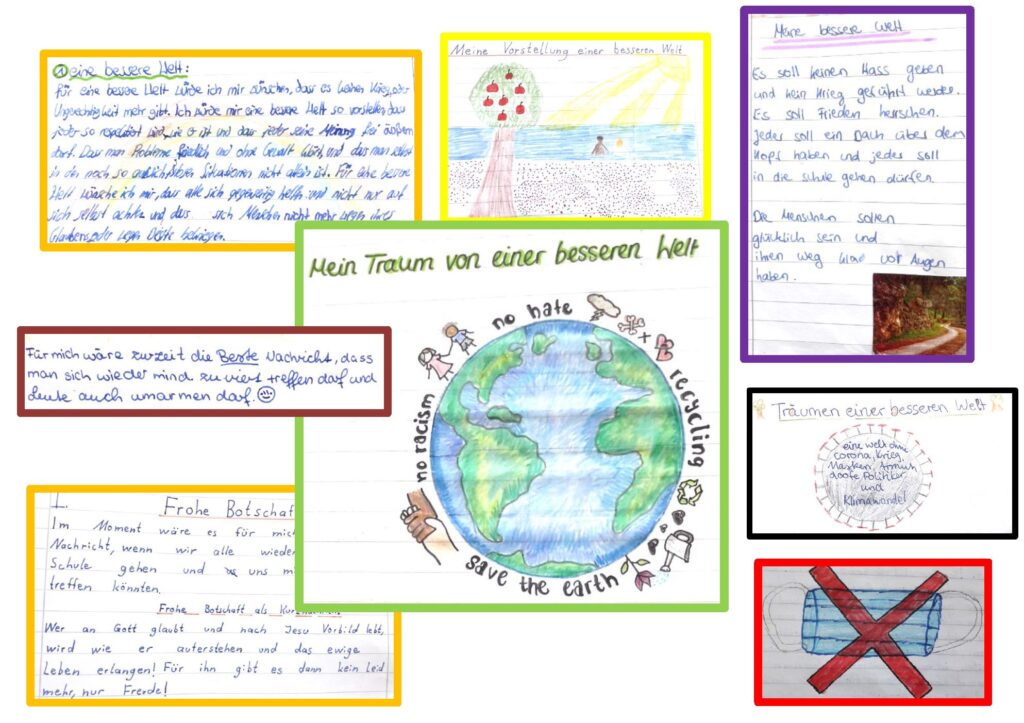 ① eine bessere Welt:
Für eine bessere Welt würde ich mir wünschen, dass es keinen Krieg oder
Ungerechtigkeit mehr gibt. Ich würde mir eine bessere Welt so vorstellen, dass
jeder so respektiert wird, wie er ist und das jeder seine Meinung frei äußern
darf. Das man Probleme friedlich und ohne Gewalt und das man selbst
in den noch so Situationen nicht allein ist. Für eine bessere
Welt wünsche ich mir, das alle sich gegenseitig helfen und nicht nur auf
sich selbst achten und dass sich Menschen nicht mehr wegen ihres
Glaubens oder wegen bekriegen.
Meine Vorstellung einer besseren Welt
Meine bessere Welt
Es soll keinen Hass geben
und kein Krieg geführt werden.
Es soll Frieden herrschen.
Jedes soll ein Dach über dem
Kopf haben und jedes soll
in die Schule gehen dürfen.
Die Menschen sollen
glücklich sein und
ihren Weg klar vor Augen
haben.
Mein Traum von einer besseren Welt
no hate
recycling
save the earth
no racism
Für mich wäre zurzeit die Beste Nachricht, dass
man sich wieder mind. zu viert treffen darf und
Leute auch umarmen darf. ☺
Träumen einer besseren Welt
eine welt ohne
corona, Krieg,
Masken, Armut,
doofe Politiker
und
Klimawandel
1.
Frohe Botschaf
Im Moment wäre es für mic
Nachricht, wenn wir alle wiede
Schule gehen und uns mi
treffen könnten.
Frohe Botschaft als
Wer an Gott glaubt und nach Jesu Vorbild lebt,
wird wie er auferstehen und das ewige
Leben erlangen! Für ihn gibt es dann kein Leid
mehr, nur Freude!